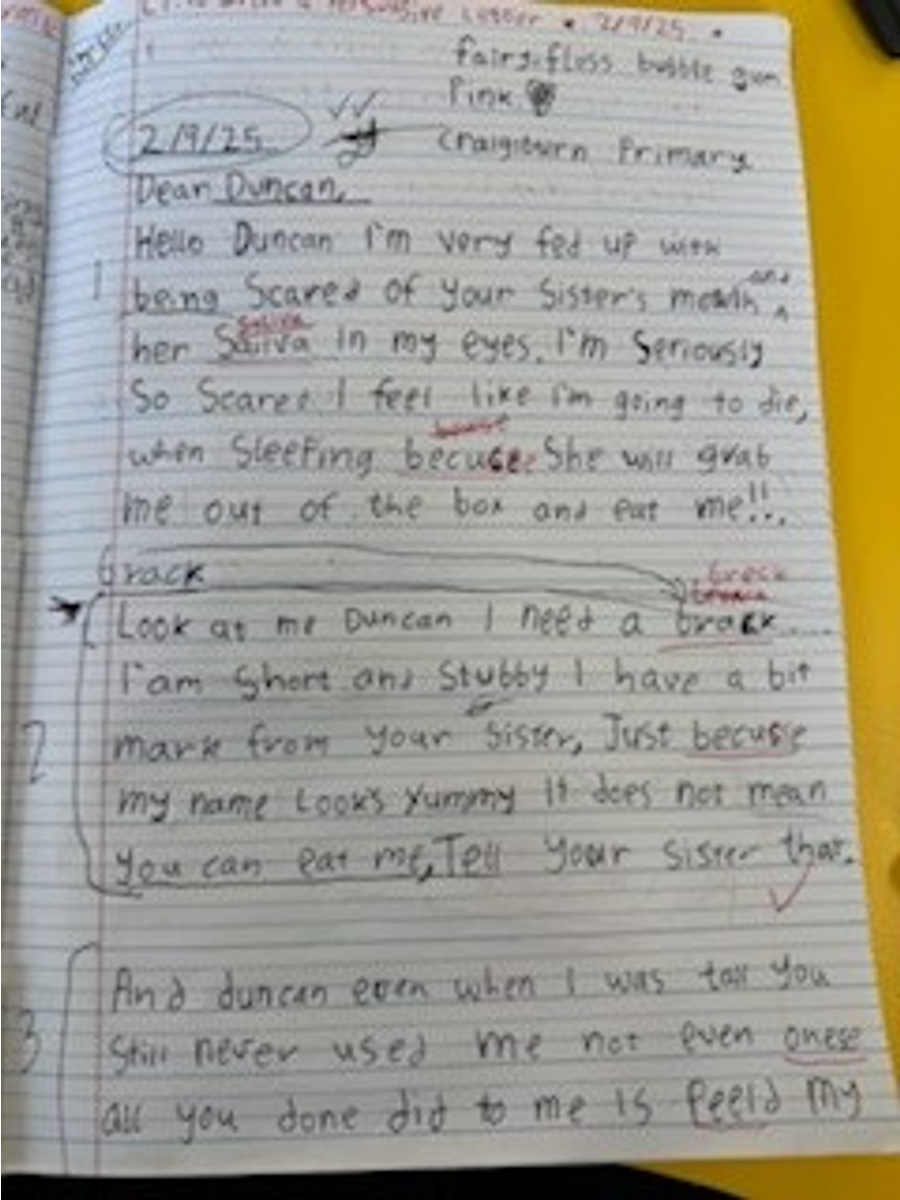 LI: to write a persuasive Letter • 2/9/25 •
fairyfloss bubble gum
Pink
2/9/25
Craigburn Primary
Dear Duncan,
Hello Duncan I'm very fed up with
being Scared of your Sister's mouth and
saliva
her Sailva in my eyes. I'm Seriously
So Scared I feel like i'm going to die,
when Sleeping becuse She will grab
me out of the box and eat me!!.
brack
break
Look at me Duncan I need a brack....
I'am Short and Stubby I have a bit
mark from your Sister, Just becuse
my name Look's yummy it does not mean
you can eat me, Tell your sister that.
And duncan even when I was tall you
Still never used me not even onese
all you done did to me is peeld my
1
2
3